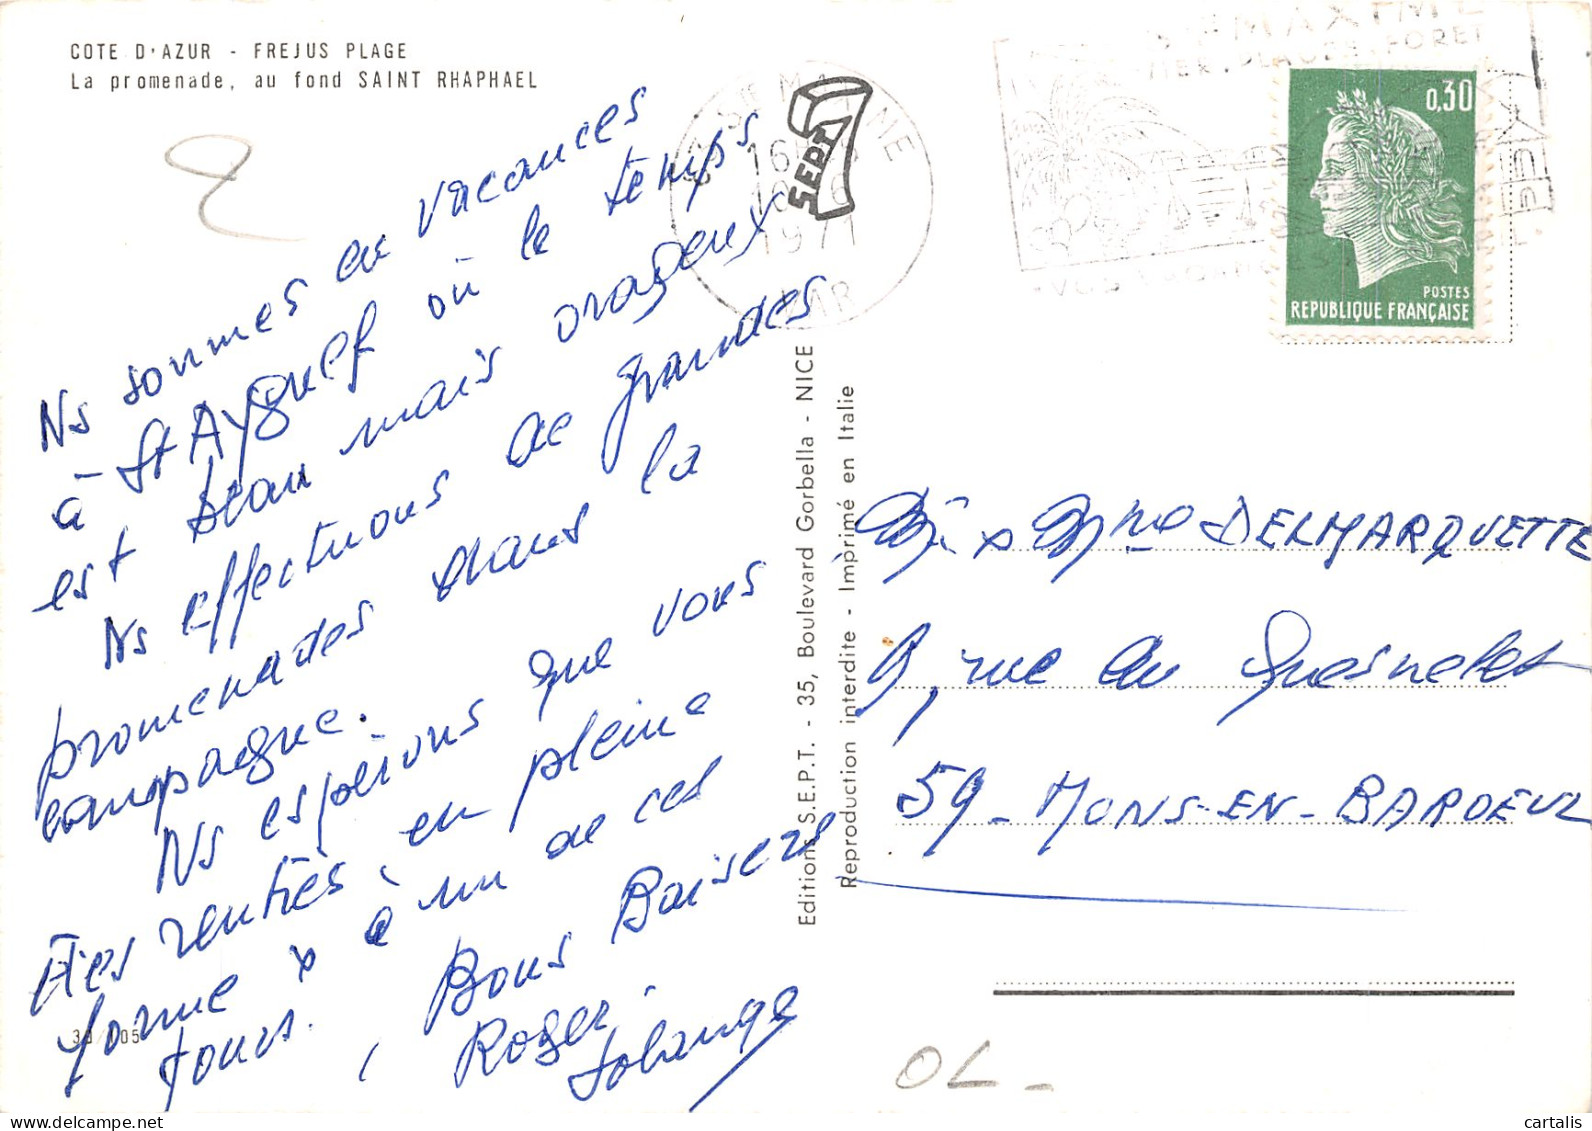 COTE D'AZUR - FREJUS PLAGE
La promenade, au fond SAINT RHAPHAEL
Ns sommes en vacances
à St Aygulf où le temps
est beau mais orageux
Ns effectuons de grandes
promenades dans la
campagne.
Ns espérons que vous
êtes rentrés en pleine
forme & à un de ces
jours.
Bons Baisers
Roger
Solange
33/105
SEPT
16H
1971
VAR
0,30
POSTES
REPUBLIQUE FRANÇAISE
Editions S.E.P.T. - 35, Boulevard Gorbella - NICE
Reproduction interdite - Imprimé en Italie
Mme DELMARQUETTE
9, rue du Quesnelet
59 - MONS-EN-BARDEUL
OL -
cartalis